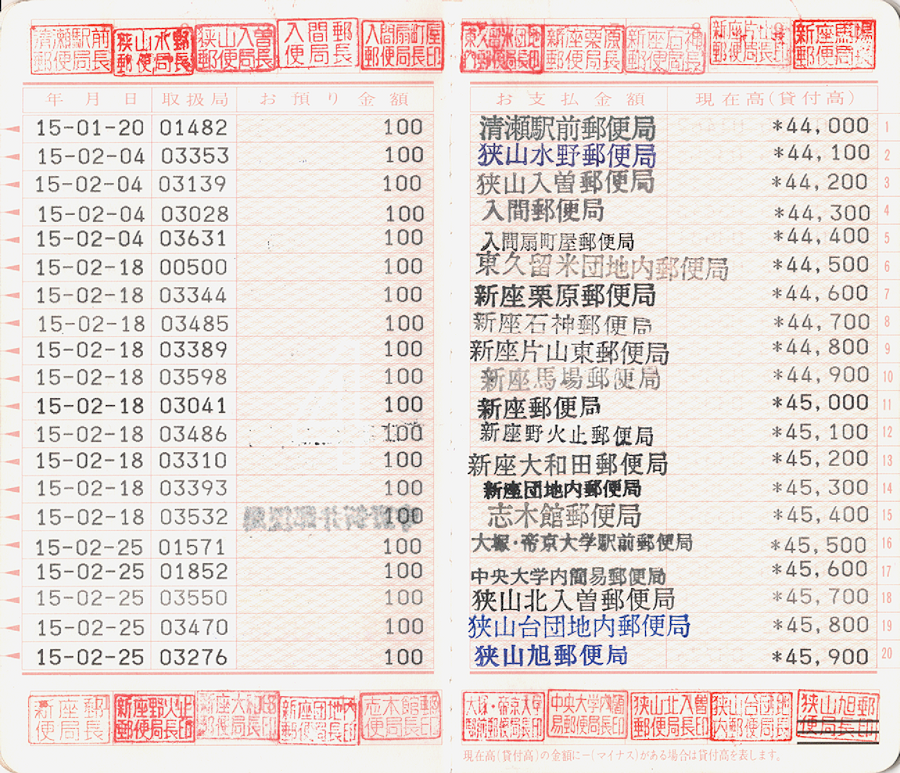 清瀬駅前郵便局長印 狭山水野郵便局長印 狭山入曽郵便局長印 入間郵便局長 入間扇町屋郵便局長印 東久留米団地内郵便局長印 新座栗原郵便局長印 新座石神郵便局長印 新座片山東郵便局長印 新座馬場郵便局長印
年月日 取扱局 お預り金額 お支払金額 現在高(貸付高)
15-01-20 01482 100 清瀬駅前郵便局 *44,000 1
15-02-04 03353 100 狭山水野郵便局 *44,100 2
15-02-04 03139 100 狭山入曽郵便局 *44,200 3
15-02-04 03028 100 入間郵便局 *44,300 4
15-02-04 03631 100 入間扇町屋郵便局 *44,400 5
15-02-18 00500 100 東久留米団地内郵便局 *44,500 6
15-02-18 03344 100 新座栗原郵便局 *44,600 7
15-02-18 03485 100 新座石神郵便局 *44,700 8
15-02-18 03389 100 新座片山東郵便局 *44,800 9
15-02-18 03598 100 新座馬場郵便局 *44,900 10
15-02-18 03041 100 新座郵便局 *45,000 11
15-02-18 03486 100 新座野火止郵便局 *45,100 12
15-02-18 03310 100 新座大和田郵便局 *45,200 13
15-02-18 03393 100 新座団地内郵便局 *45,300 14
15-02-18 03532 100 志木館郵便局 *45,400 15
15-02-25 01571 100 大塚・帝京大学駅前郵便局 *45,500 16
15-02-25 01852 100 中央大学内簡易郵便局 *45,600 17
15-02-25 03550 100 狭山北入曽郵便局 *45,700 18
15-02-25 03470 100 狭山台団地内郵便局 *45,800 19
15-02-25 03276 100 狭山旭郵便局 *45,900 20
新座郵便局長 新座野火止郵便局長印 新座大和田郵便局長印 新座団地内郵便局長印 志木館郵便局長印 大塚・帝京大学駅前郵便局長印 中央大学内簡易郵便局長印 狭山北入曽郵便局長印 狭山台団地内郵便局長印 狭山旭郵便局長印
現在高(貸付高)の金額に−(マイナス)がある場合は貸付高を表します。